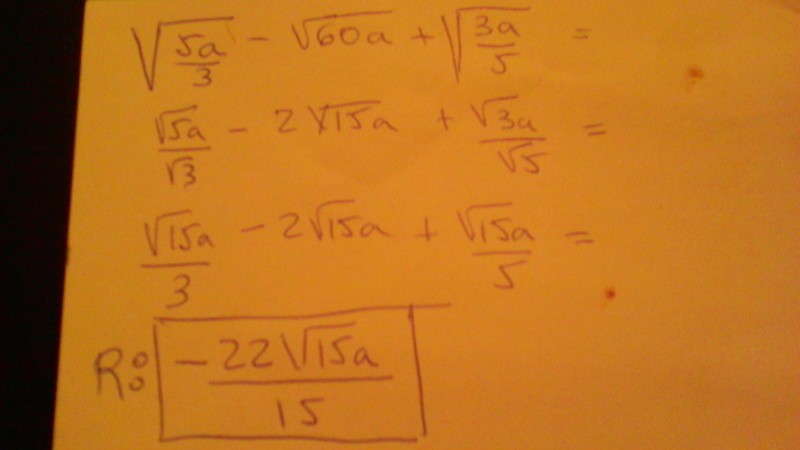 √(5a/3) - √60a + √(3a/5) =
√5a/√3 - 2√15a + √3a/√5 =
√15a/3 - 2√15a + √15a/5 =
R: -22√15a/15